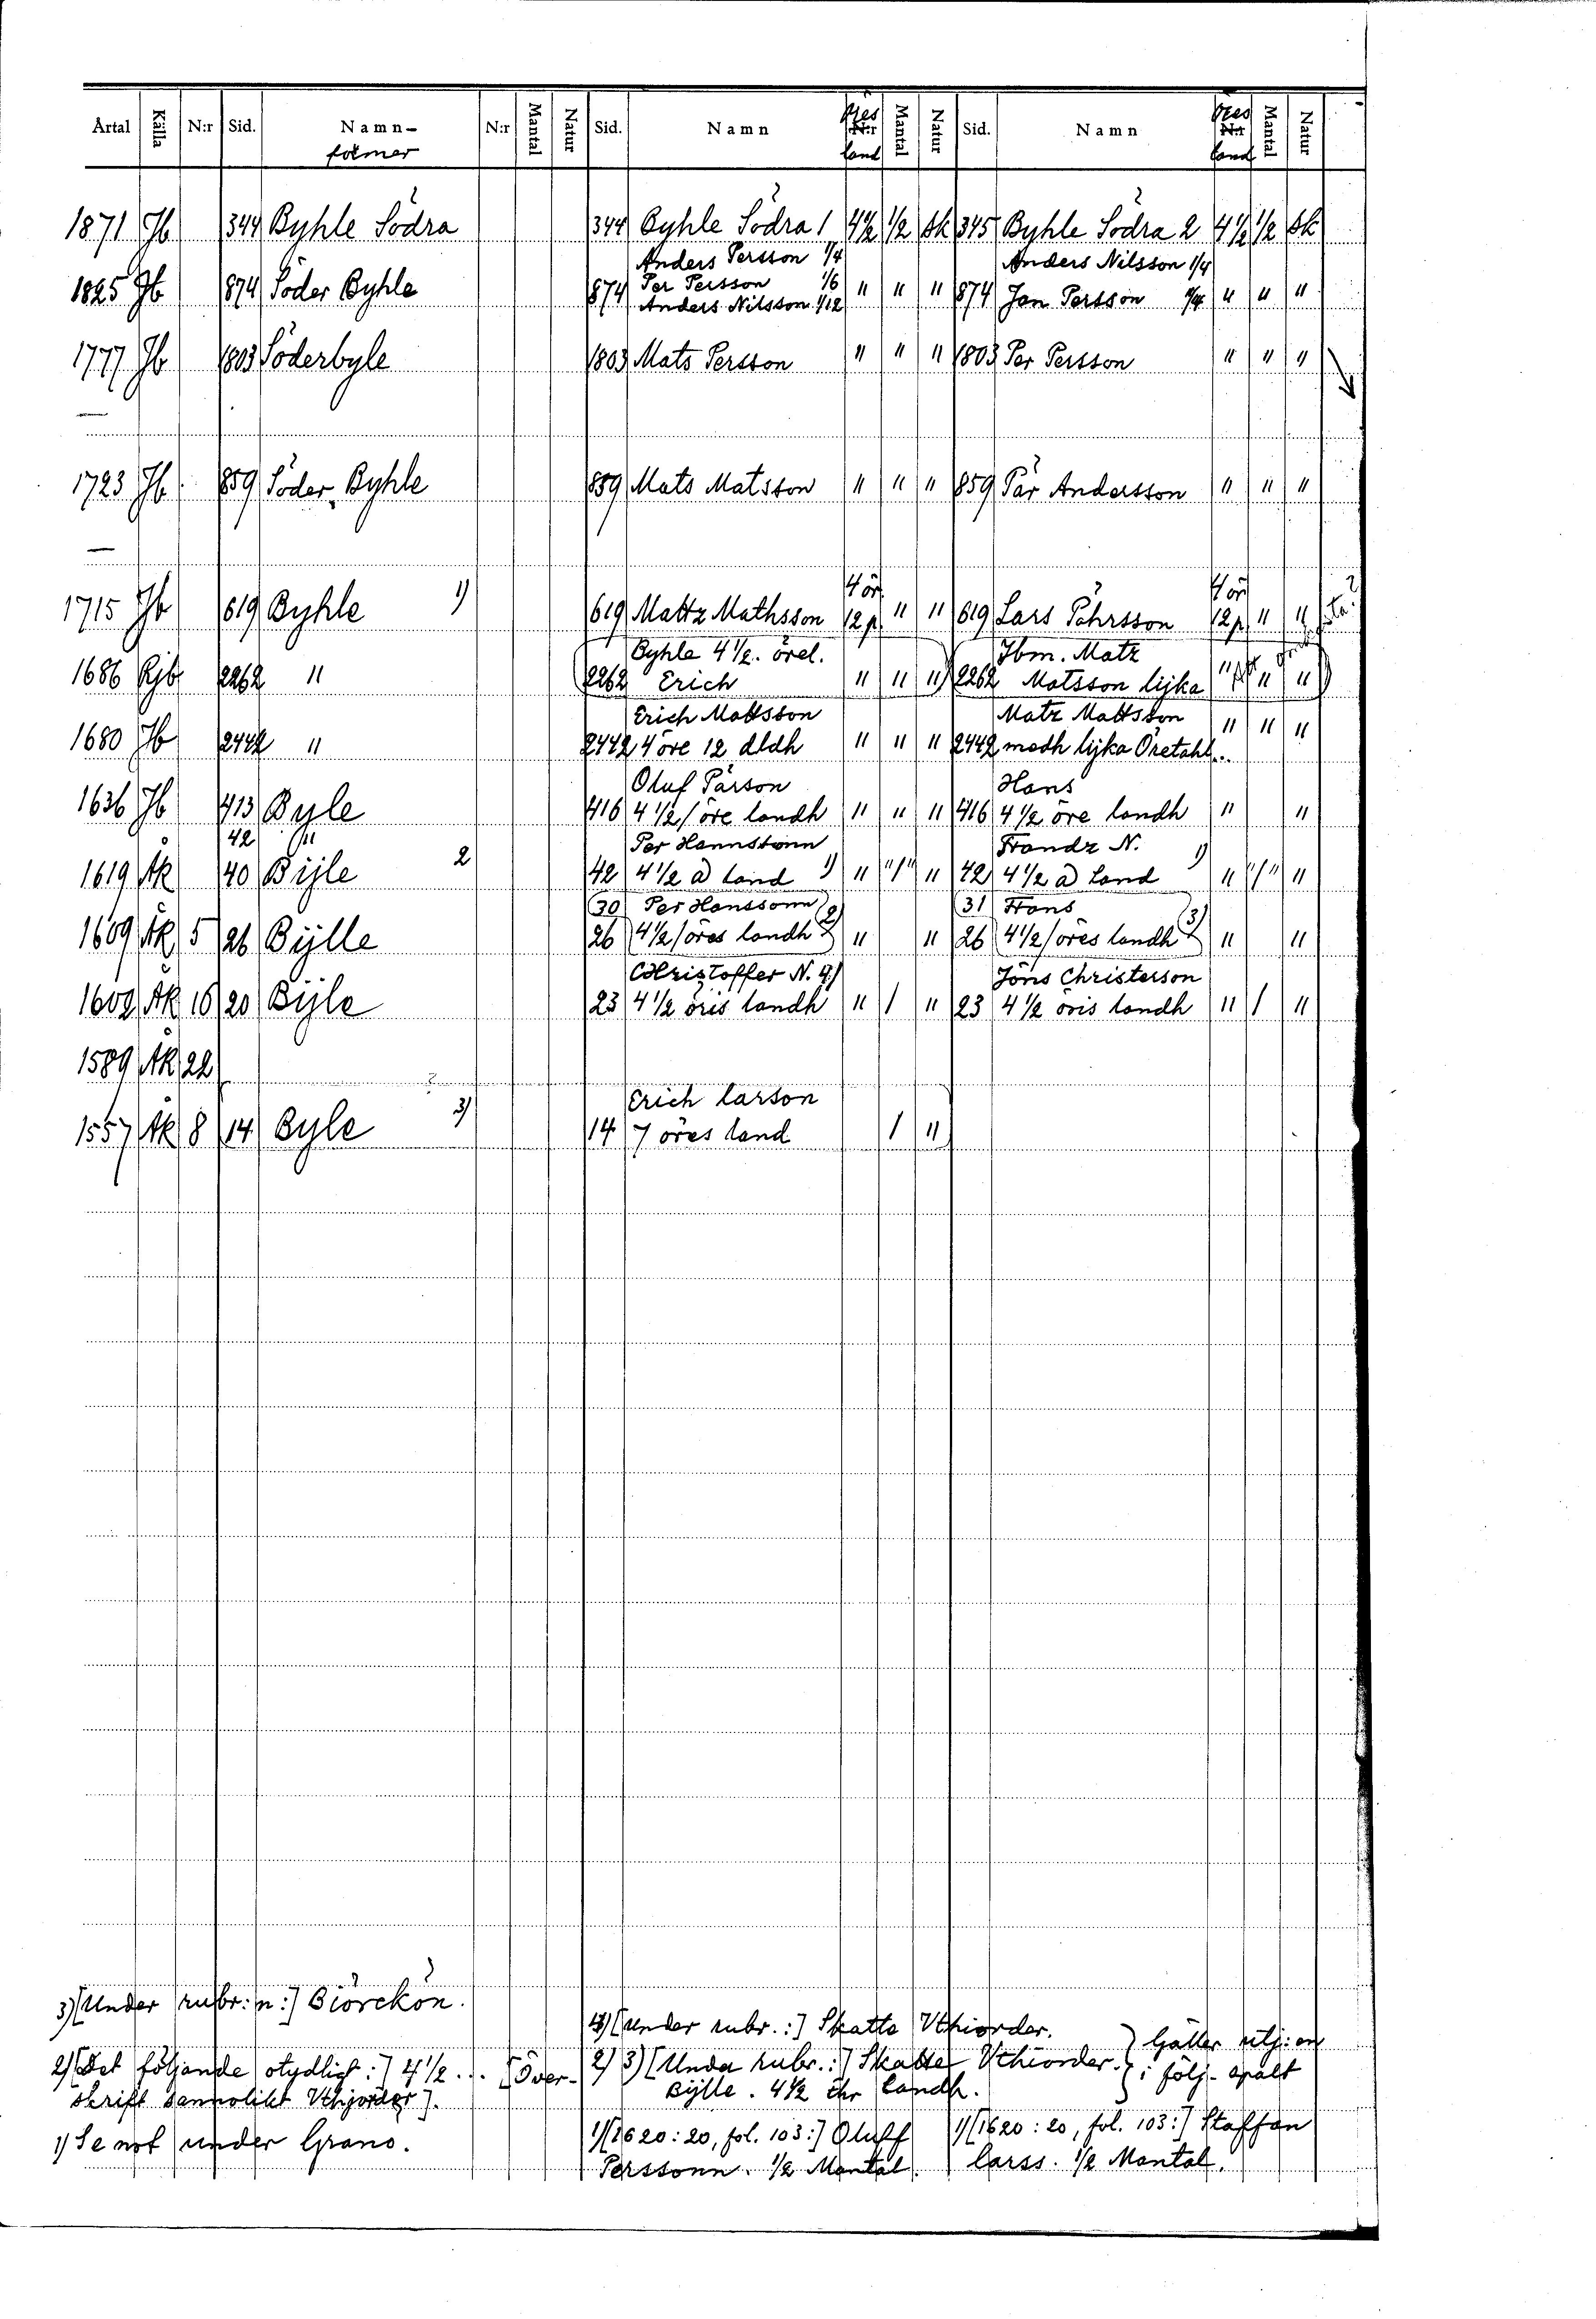 Årtal Källa N:r Sid. Namn- N:r Mantal Natur Sid. Namn Öres N:r Mantal Natur Sid. Namn Öres N:r Mantal Natur
former land land
1871 Jb 344 Byhle Södra 344 Byhle Södra 1 4½ ½ Sk 345 Byhle Södra 2 4½ ½ Sk
Anders Persson 1/4 Anders Nilsson 1/4
1825 Jb 874 Söder Byhle 874 Per Persson 1/6 " " " 874 Jan Persson 1/4 " " "
Anders Nilsson 1/12
1777 Jb 1803 Söderbyle 1803 Mats Persson " " " 1803 Per Persson " " "
—
1723 Jb 859 Söder Byhle 859 Mats Matsson " " " 859 Pär Andersson " " "
—
4 ör 4 ör
1715 Jb 619 Byhle 1) 619 Mattz Mathsson 12 p " " 619 Lars Pährsson 12 p " "
Byhle 4 1/2. örel. Ibm. Matz
1686 Rjb 2262 " 2262 Erich " " " 2262 Matsson lijka " " "
Erich Mattsson Matz Mattsson " " "
1680 Jb 2442 " 2442 4 öre 12 dldh " " " 2442 medh lijka Öretahl..
Oluf Pärson Hans
1636 Jb 413 Byle 416 4 1/2/öre landh " " " 416 4 1/2 öre landh " "
42 " Per Hannsonn Frandz N.
1619 Äk 40 Bijle 2 42 4 1/2 ö land 1) " "/" " 42 4 1/2 ö land 1) " "/" "
(30) Per Hanssonn (31 Frans
1609 Äk 5 26 Bijlle 26 4 1/2/öres landh 2) " " 26 4 1/2/öres landh 3) " "
Christoffer N. 4) Jöns Christerson
1602 Äk 16 20 Bijle 23 4 1/2 öris landh " / " 23 4 1/2 öris landh " / "
1589 Äk 22
Erich larson
1557 Äk 8 14 Byle 3) 14 7 öres land / "
3) [Under rubr:n:] Biörckön.
2) [Det följande otydligt:] 4 1/2 ... [Över-
skrift sannolikt Vthjorder].
1) Se not under Grano.
4) [Under rubr.:] Skatte Vthiorder.
2) 3) [Under rubr.:] Skatte Vthiorder. } Gäller utj:en
Bijlle. 4½ öhr landh. i följ. spalt
1) [1620:20, fol. 103:] Oluff
Perssonn. 1/2 Mantal.
1) [1620:20, fol. 103:] Staffan
larss. 1/2 Mantal.